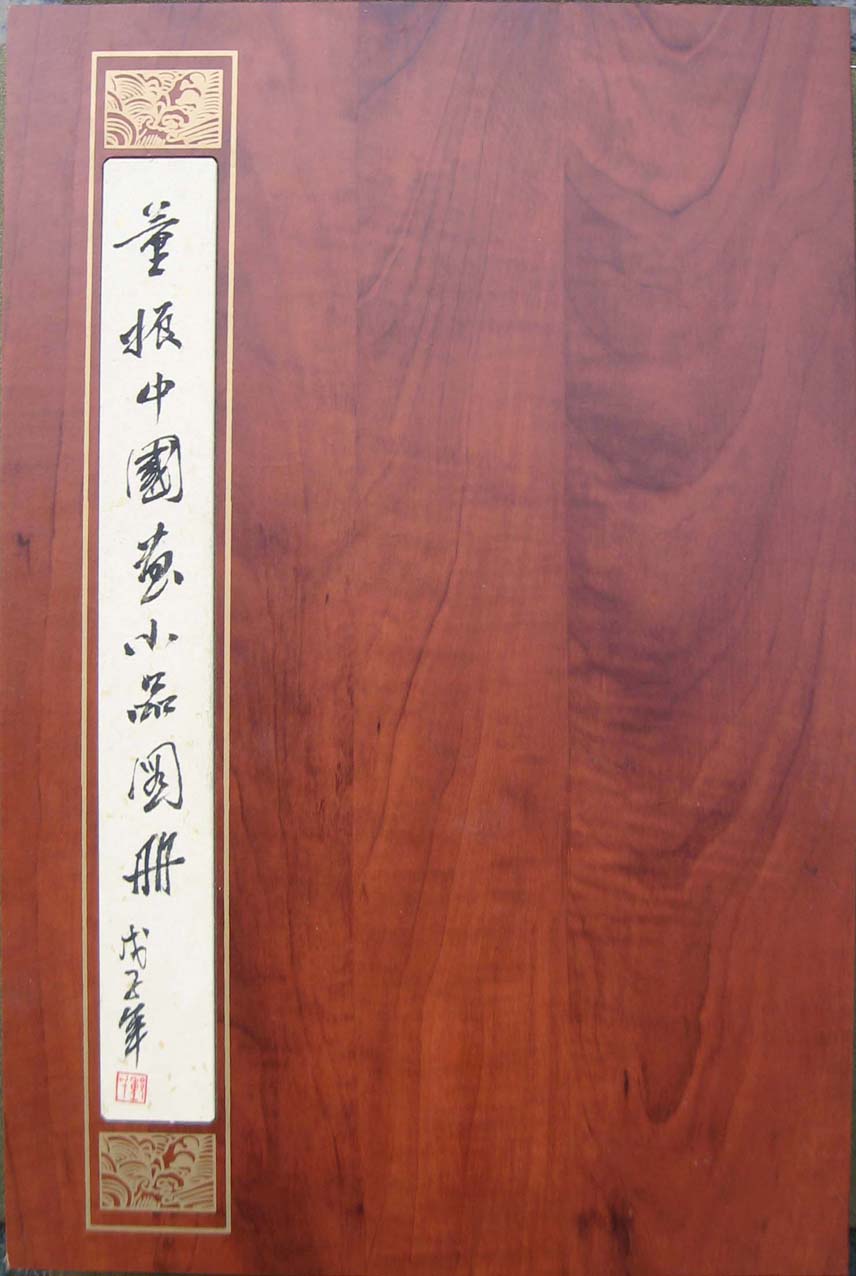 董振中國畫小品圖册
戊子年